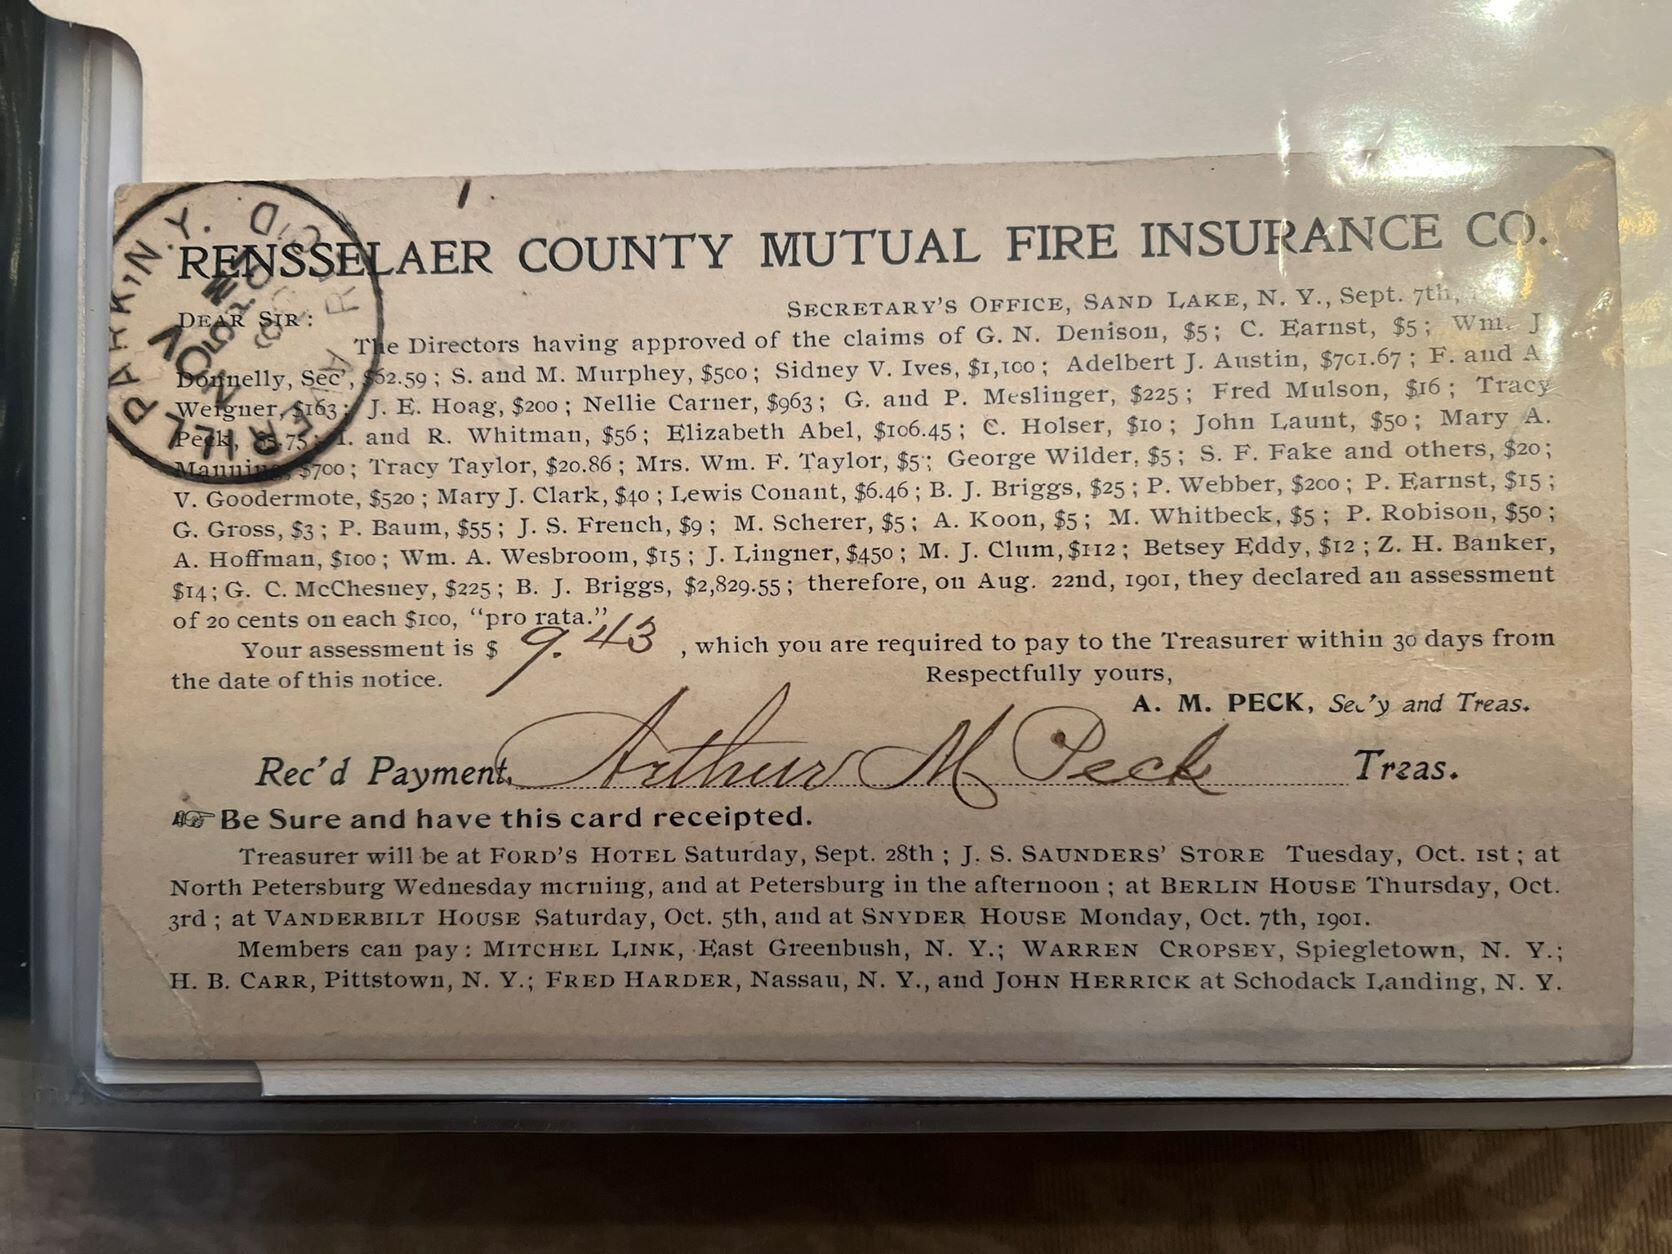 RENSSELAER COUNTY MUTUAL FIRE INSURANCE CO.
SECRETARY'S OFFICE, SAND LAKE, N. Y., Sept. 7th,
DEAR SIR:
The Directors having approved of the claims of G. N. Denison, $5; C. Earnst, $5; Wm. J.
Donnelly, Sec', $62.59; S. and M. Murphey, $500; Sidney V. Ives, $1,100; Adelbert J. Austin, $701.67; F. and A.
Weigner, $163; J. E. Hoag, $200; Nellie Carner, $963; G. and P. Meslinger, $225; Fred Mulson, $16; Tracy
Peck, 5.75; and R. Whitman, $56; Elizabeth Abel, $106.45; C. Holser, $10; John Launt, $50; Mary A.
Manning, $700; Tracy Taylor, $20.86; Mrs. Wm. F. Taylor, $5; George Wilder, $5; S. F. Fake and others, $20;
V. Goodermote, $520; Mary J. Clark, $40; Lewis Conant, $6.46; B. J. Briggs, $25; P. Webber, $200; P. Earnst, $15;
G. Gross, $3; P. Baum, $55; J. S. French, $9; M. Scherer, $5; A. Koon, $5; M. Whitbeck, $5; P. Robison, $50;
A. Hoffman, $100; Wm. A. Wesbroom, $15; J. Lingner, $450; M. J. Clum, $112; Betsey Eddy, $12; Z. H. Banker,
$14; G. C. McChesney, $225; B. J. Briggs, $2,829.55; therefore, on Aug. 22nd, 1901, they declared an assessment
of 20 cents on each $100, "pro rata."
Your assessment is $ 9.43, which you are required to pay to the Treasurer within 30 days from
the date of this notice. Respectfully yours,
A. M. PECK, Sec'y and Treas.
Rec'd Payment, Arthur M Peck Treas.
☞ Be Sure and have this card receipted.
Treasurer will be at FORD'S HOTEL Saturday, Sept. 28th; J. S. SAUNDERS' STORE Tuesday, Oct. 1st; at
North Petersburg Wednesday morning, and at Petersburg in the afternoon; at BERLIN HOUSE Thursday, Oct.
3rd; at VANDERBILT HOUSE Saturday, Oct. 5th, and at SNYDER HOUSE Monday, Oct. 7th, 1901.
Members can pay: MITCHEL LINK, East Greenbush, N. Y.; WARREN CROPSEY, Spiegletown, N. Y.;
H. B. CARR, Pittstown, N. Y.; FRED HARDER, Nassau, N. Y., and JOHN HERRICK at Schodack Landing, N. Y.